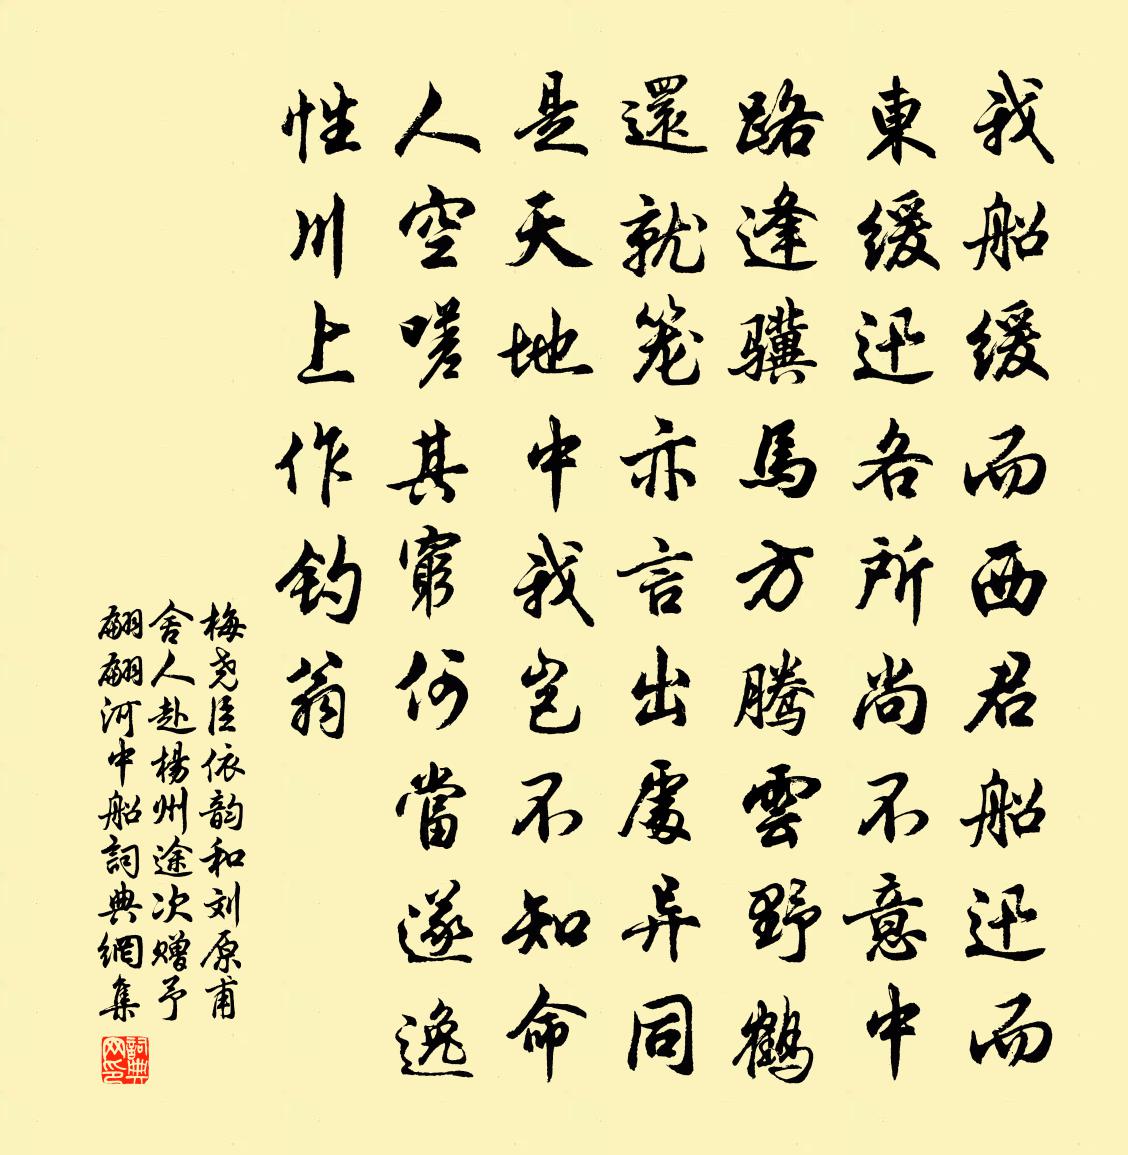 我船缓而西君船迅而
東缓迅各所尚不意中
路逢骥馬方腾雲野鹤
還就笼亦言出處异同
是天地中我岂不知命
人空嗟其窮何當遂逸
性川上作钓翁
梅尧臣依韵和刘原甫
舍人赴楊州途次赠予
翩翩河中船詞典網集
詞典
网印